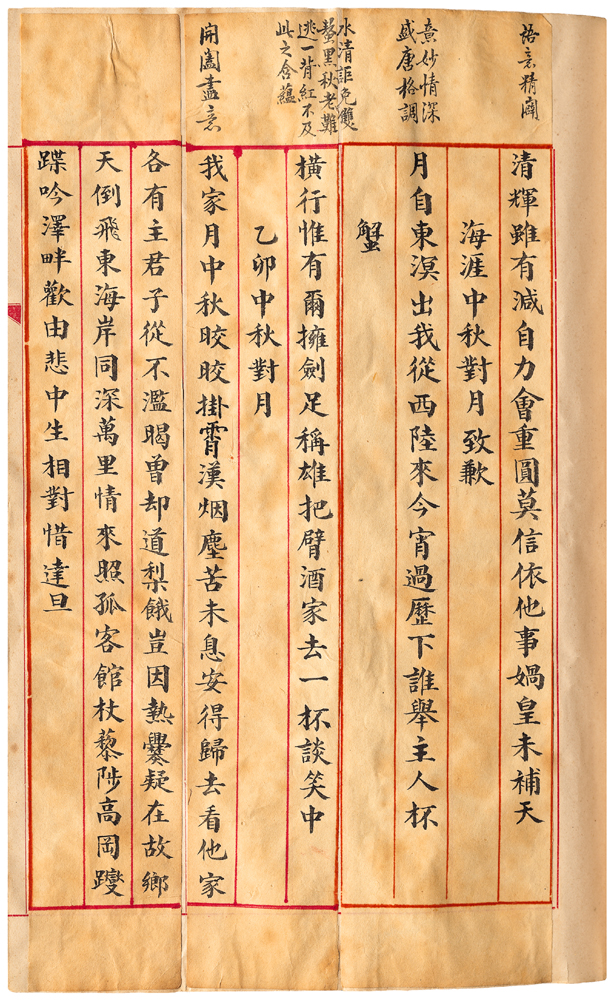 語意精闢
意妙情深
盛唐格調
水清詎免雙
螯黑秋老難
逃一背紅不及
此之含蘊
開闔盡意
清輝雖有減自力會重圓莫信依他事媧皇未補天
海涯中秋對月致歉
月自東溟出我從西陸來今宵過歷下誰舉主人杯
蟹
橫行惟有爾擁劍足稱雄把臂酒家去一杯談笑中
乙卯中秋對月
我家月中秋晈晈掛霄漢烟塵苦未息安得歸去看他家
各有主君子從不濫暍曾却道梨餓豈因熱爨疑在故鄉
天倒飛東海岸同深萬里情來照孤客館杖藜陟高岡躞
蹀吟澤畔歡由悲中生相對惜達旦